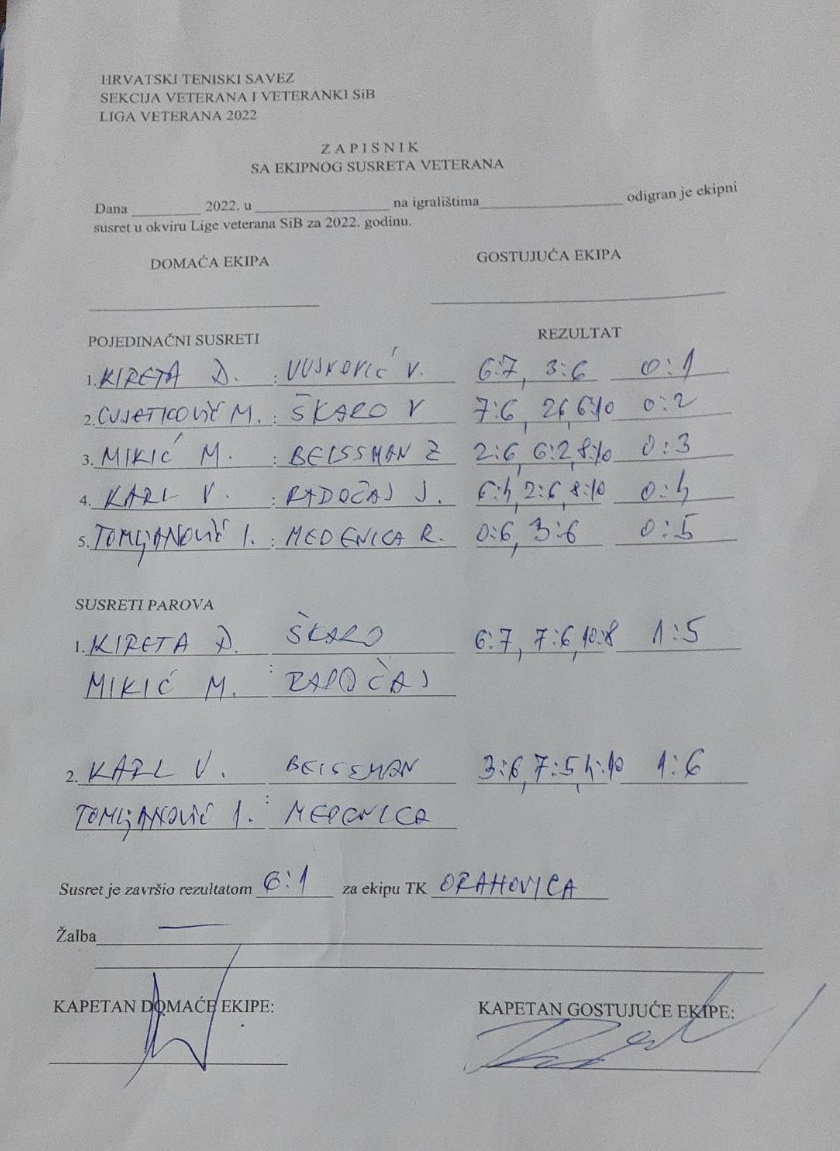 HRVATSKI TENISKI SAVEZ
SEKCIJA VETERANA I VETERANKI SiB
LIGA VETERANA 2022
ZAPISNIK
SA EKIPNOG SUSRETA VETERANA
Dana ________ 2022. u ________________ na igralištima ________________ odigran je ekipni
susret u okviru Lige veterana SiB za 2022. godinu.
DOMAĆA EKIPA GOSTUJUĆA EKIPA
POJEDINAČNI SUSRETI REZULTAT
1. KIRETA Đ. : VUJKOVIĆ V. 6:7, 3:6 0:1
2. CVJETKOVIĆ M. : ŠKARO V 7:6, 2:6, 6:10 0:2
3. MIKIĆ M. : BEISSMAN Z 2:6, 6:2, 8:10 0:3
4. KARL V. : RADOČAJ J. 6:4, 2:6, 8:10 0:4
5. TOMLJANOVIĆ I. : MEDENICA R. 0:6, 3:6 0:5
SUSRETI PAROVA
1. KIRETA Đ. ŠKARO 6:7, 7:6, 10:8 1:5
MIKIĆ M. : RADOČAJ
2. KARL V. BEISSMAN 3:6, 7:5, 4:10 1:6
TOMLJANOVIĆ I. : MEDENICA
Susret je završio rezultatom 6:1 za ekipu TK ORAHOVICA
Žalba —
KAPETAN DOMAĆE EKIPE: KAPETAN GOSTUJUĆE EKIPE: